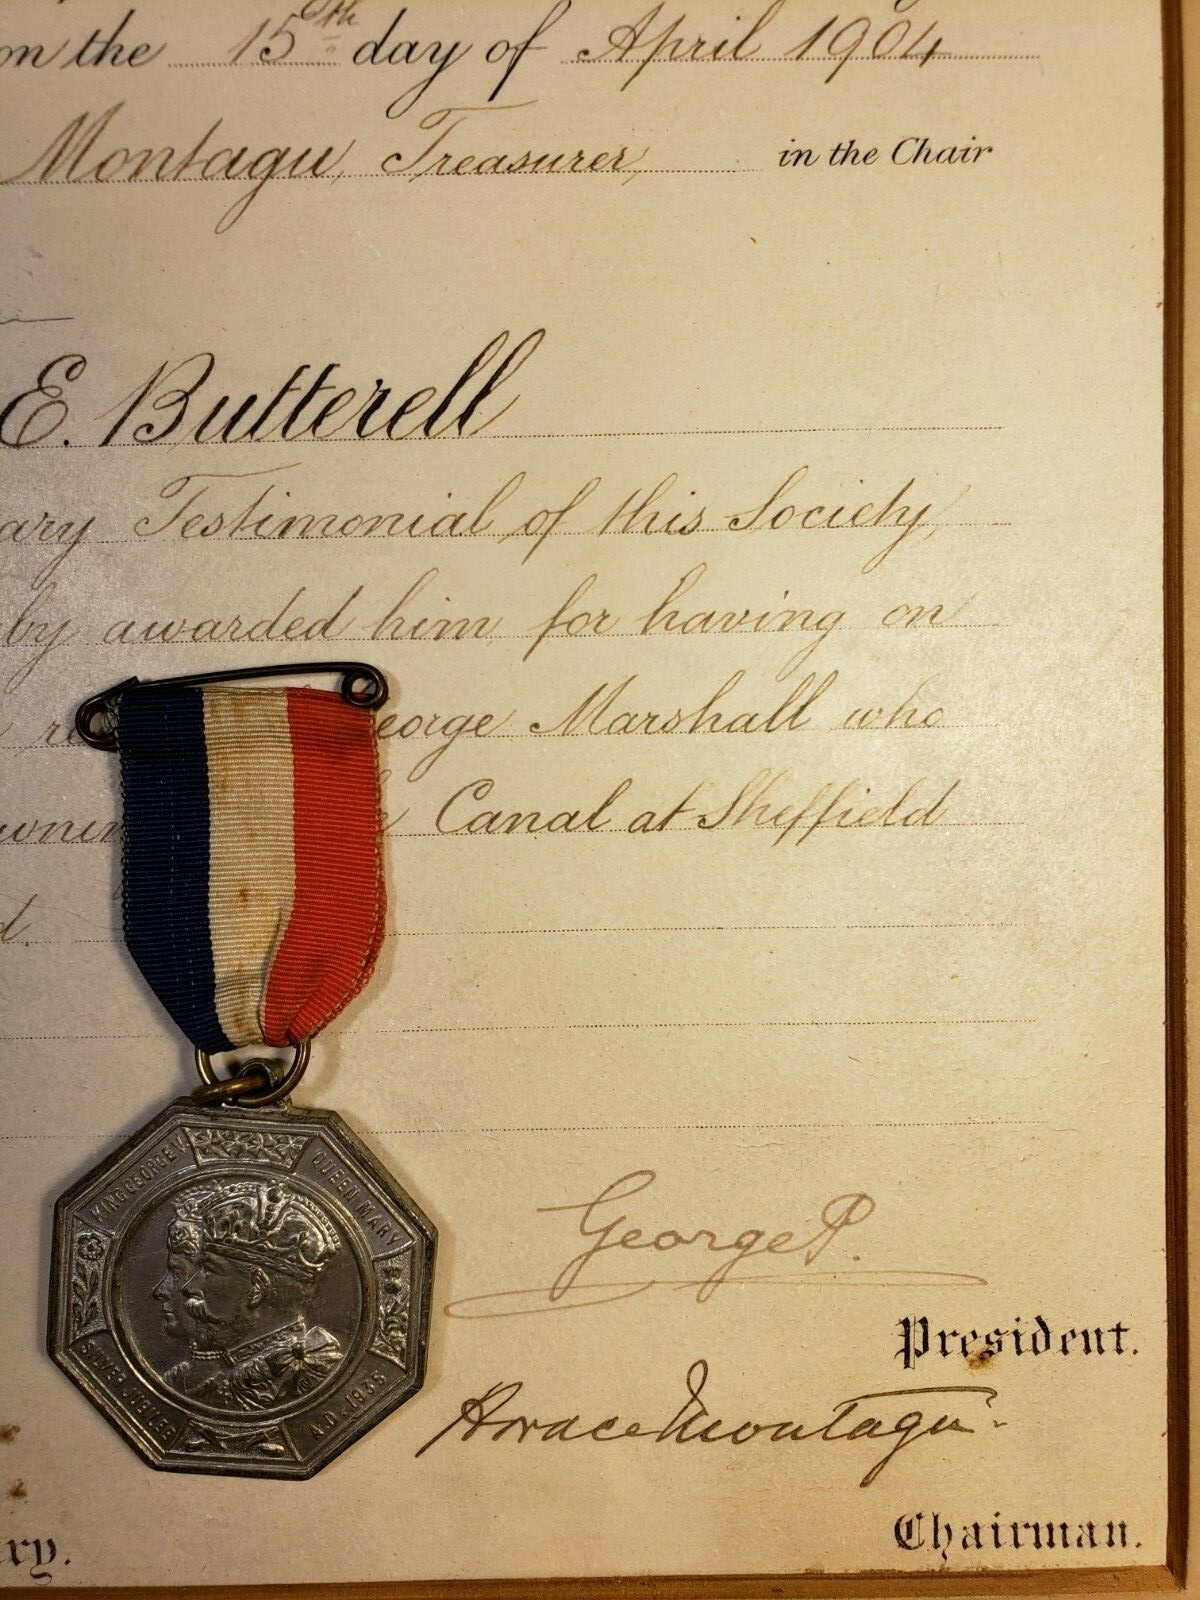 on the 15th day of April 1904
Montagu, Treasurer, in the Chair
E. Butterell
ary Testimonial of this Society,
by awarded him for having on
eorge Marshall who
Canal at Sheffield
d.
KING GEORGE V.
QUEEN MARY
SILVER JUBILEE
A.D. 1935
George P.
President.
Horace Montagu.
Chairman.
ry.